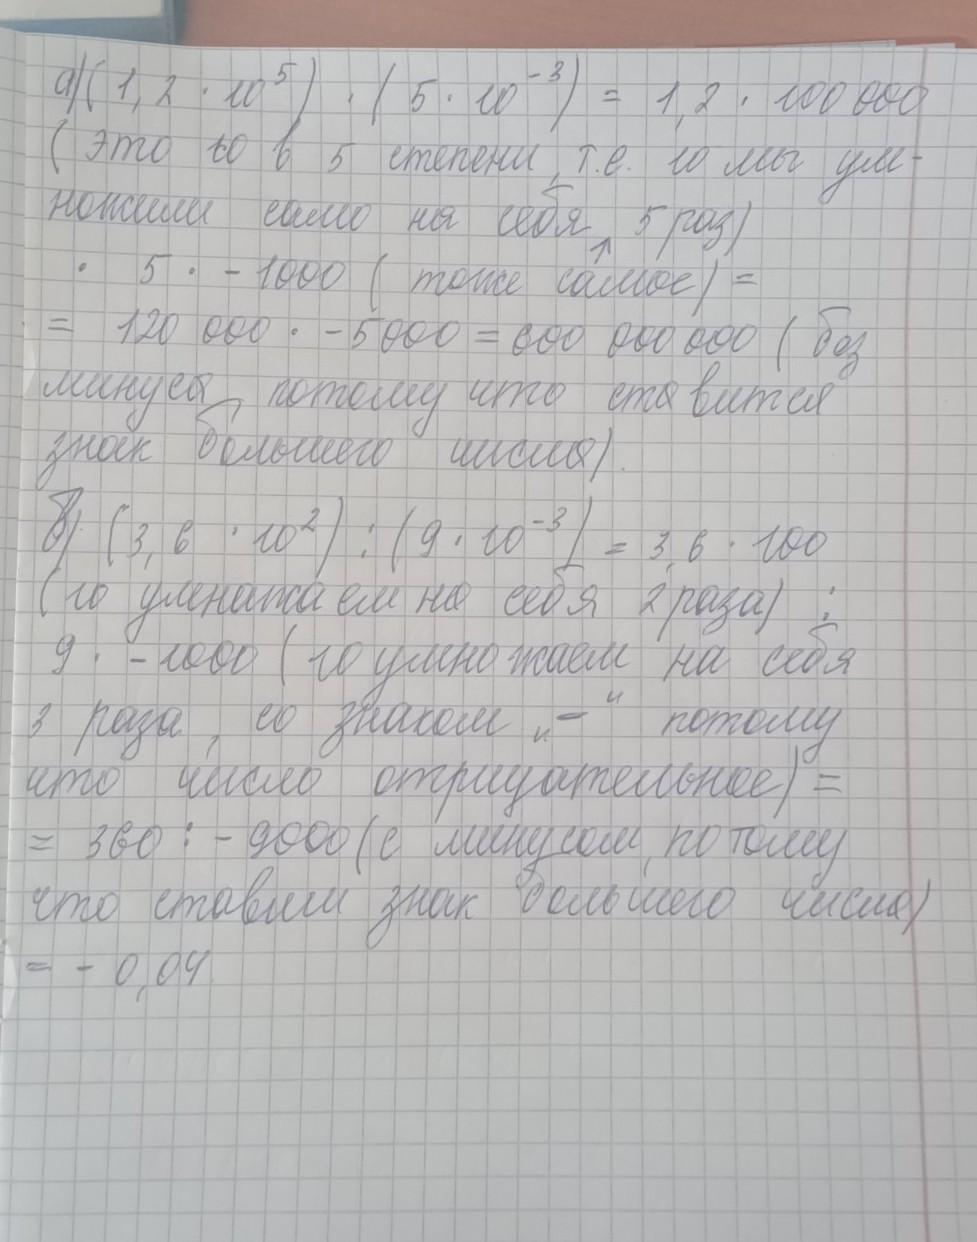 а) (1,2 · 10⁵) · (5 · 10⁻³) = 1,2 · 100 000
(это 10 в 5 степени, т.е. 10 мы ум-
ножили само на себя 5 раз)
· 5 · -1000 (тоже самое) =
= 120 000 · -5000 = 600 000 000 (без
минуса, потому что ставится
знак большего числа).
б) (3,6 · 10²) : (9 · 10⁻³) = 3,6 · 100
(10 умнажаем на себя 2 раза) :
9 · -1000 (10 умножаем на себя
3 раза, со знаком „-“ потому
что число отрицательное) =
= 360 : -9000 (с минусом, потому
что ставим знак большего числа)
= - 0,04